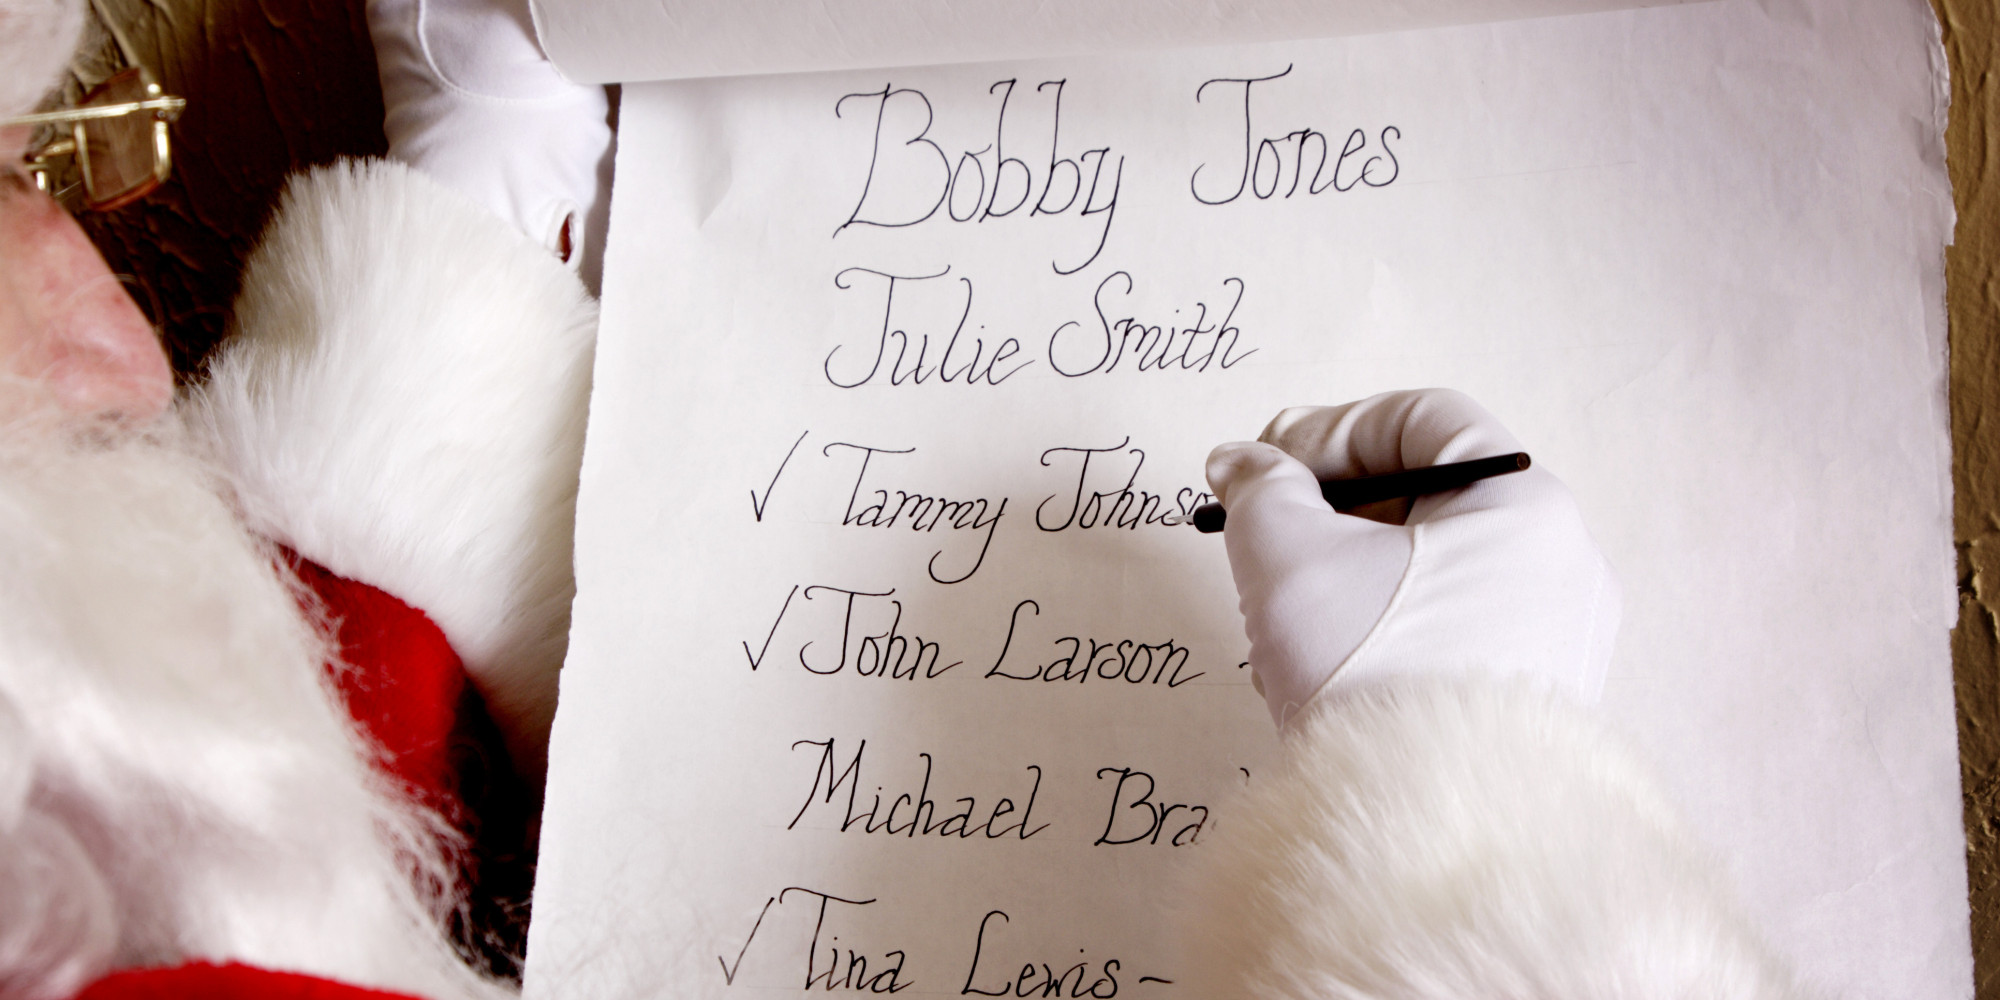 Bobby Jones
Julie Smith
✓ Tammy Johnso
✓ John Larson -
Michael Bra
✓ Tina Lewis -